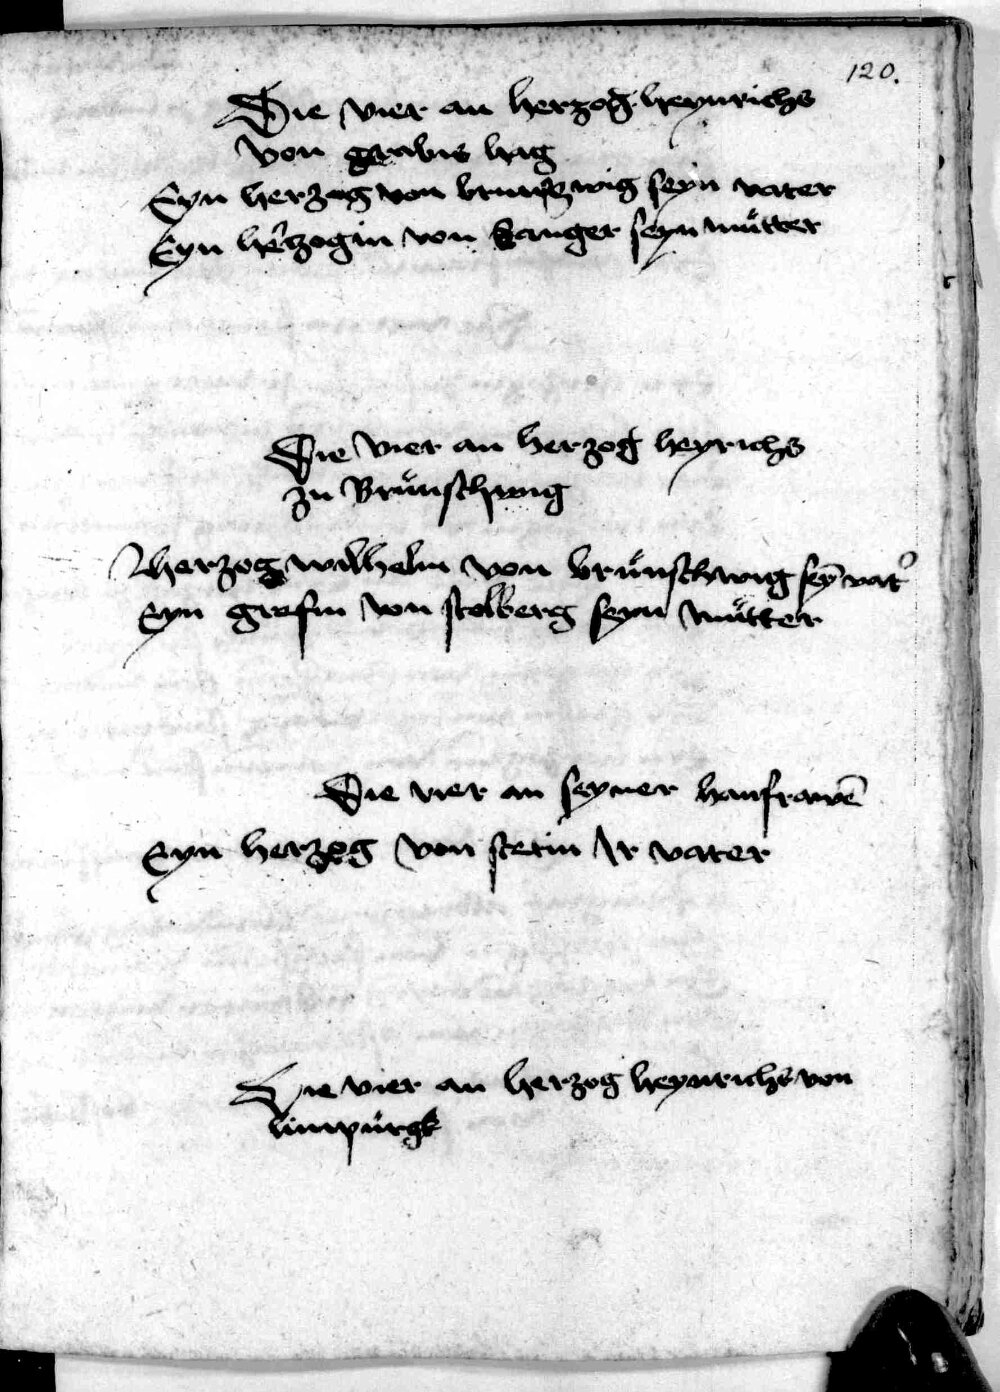 120.
Die vier an herzog heynrichs
von grabn hag
Eyn herzog von brunszwig seyn vater
Eyn h'erzogin von sanger seyn mütter
Die vier an herzog heyrichs
zu Brünschwig
herzog wilhelm von brünschwig sey̅ vat'
Eyn grefin von stolberg seyn mütter
Die vier an seyner hausfrawe̅
Eyn herzog von stetin Ir vater
Die vier an herzog heynrichs von
limpürgk